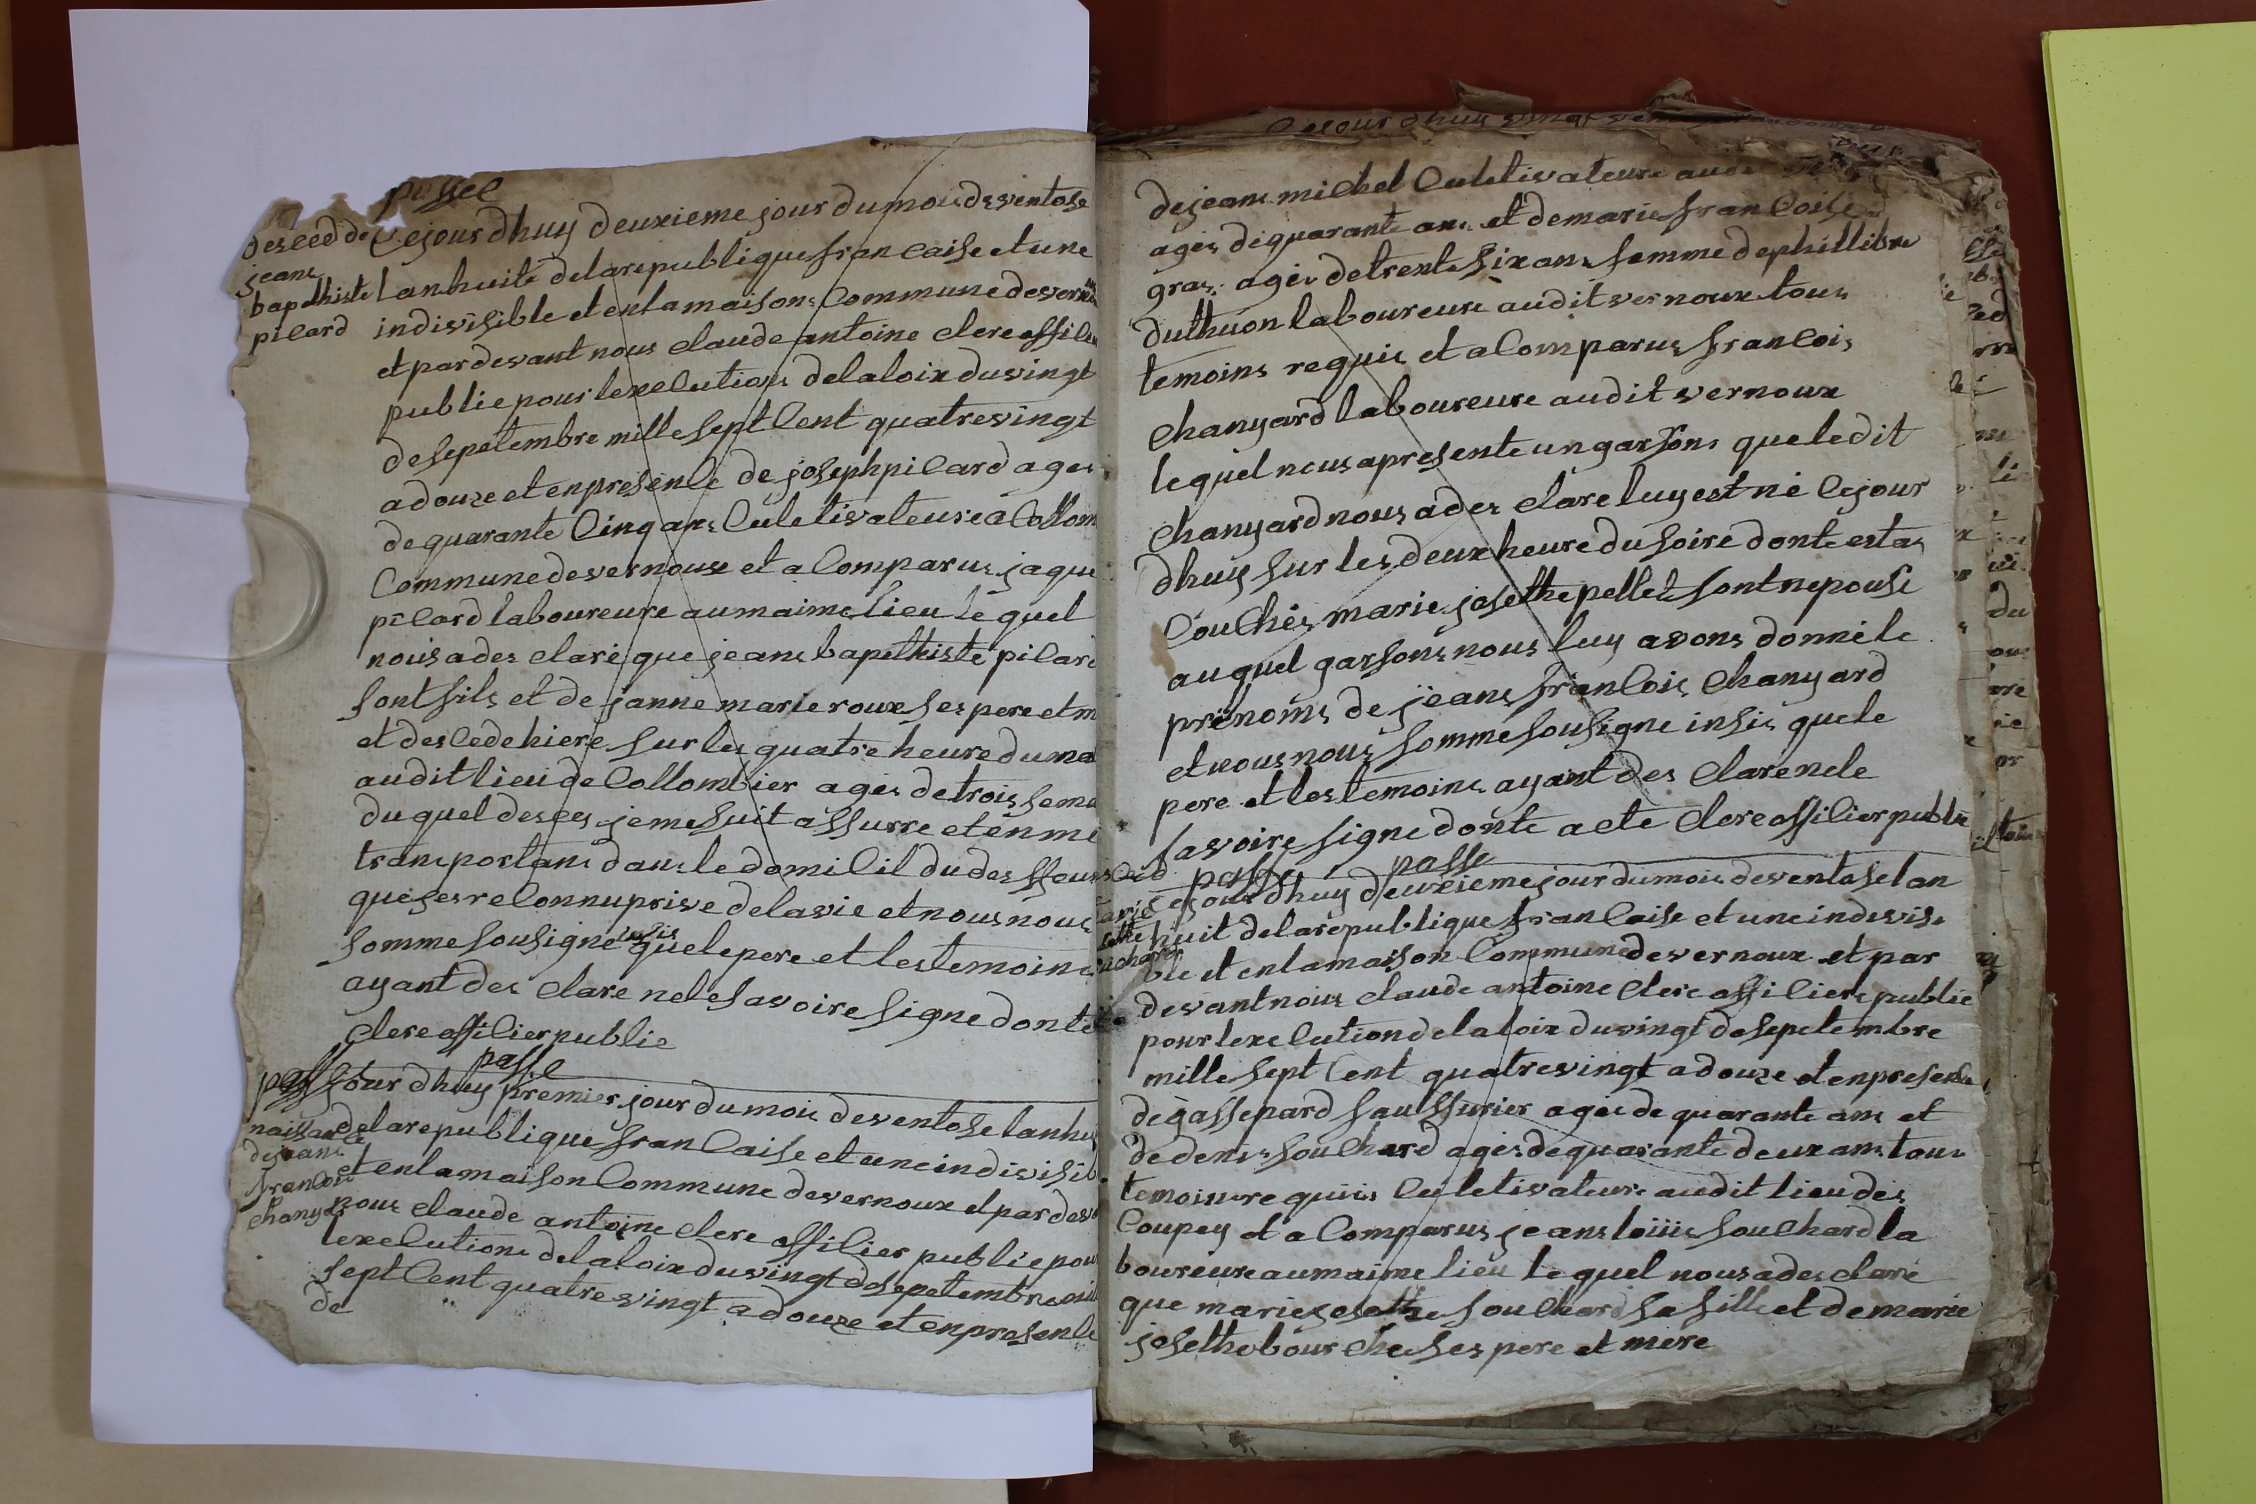 passee
desced de
jeane
bapethiste
picard
Cejourdhuy deuxieme jour du mois de ventose
lanhuite delarepublique francaise et une
indivisible et enlamaisons Commune de vern
et pardevant nous claude antoine clere offi
publie pour lexecutions delaloix duvingt
desepetembre mille sept Cent quatrevingt
adouze et enpresence de joseph picard ages
dequarante Cinq ans Culetivateure a Collom
Commune devernoux et a Comparus jaque
picard laboureure au maime lieu le quel
nous a des claré que jeans bapethiste picard
sont fils et de janne marie roux ses pere et m
et descede hiere sur les quatre heure du ma
audit lieu de Collombier ages de trois sema
duquel desces jeme suit assurre et en me
transportans dans le domicil du des
que jes reconnu prive delavie et nous nous
somme sousigne insis quelepere et les temoins
ayant des clare nele savoire signe donte
clere officier publie
passe passe
naissance
dejeane
francois
chanyard
jour dhuy premier jour du mois de ventose lanhui
delarepublique francaise et une indivisib
et enlamaison Commune devernoux et pardev
nous claude antoine clere officier publie pour
lexecutions delaloix duvingt desepetembre mil
sept Cent quatrevingt adouze et enpresence
de
Cejour dhuy vingt
dejeans michel Culetivateure au
ages dequarante ans et demarie francoise
gras ages detrente six ans femme dephillibre
duthuon laboureure audit vernoux tous
temoins requis et a Comparus francois
chanyard laboureure audit vernoux
lequel nous apresente un garsons queledit
chanyard nous a des clare luy est né Cejour
dhuy sur les deux heure du soire donte estas
Couchés marie josethe pellet sont nepouse
auquel garsons nous luy avons donné le
prenoms de jeans francois chanyard
et nous nous somme sousigne insis quele
pere et les temoins ayant des clare nele
savoire signe donte acte clere officier publie
passe passe
Cejour dhuy deuxieme jour du mois de ventose lan
huit delarepublique francaise et une indevisi
ble et enlamaison Commune devernoux et par
devant nous claude antoine clere officiere publie
pour lexecution delaloix duvingt desepetembre
mille sept Cent quatrevingt adouze et enpresence
de gassepard saussurier ages de quarante ans et
de denis souchard ages dequarante deux ans tous
temoins requiis Culetivateure audit lieu des
Coupey et a Comparus jeans loiiis souchard la
boureure au maime lieu le quel nous a des claré
que marie josethe souchard sa fille et de marie
josethe bourchei ses pere et mere